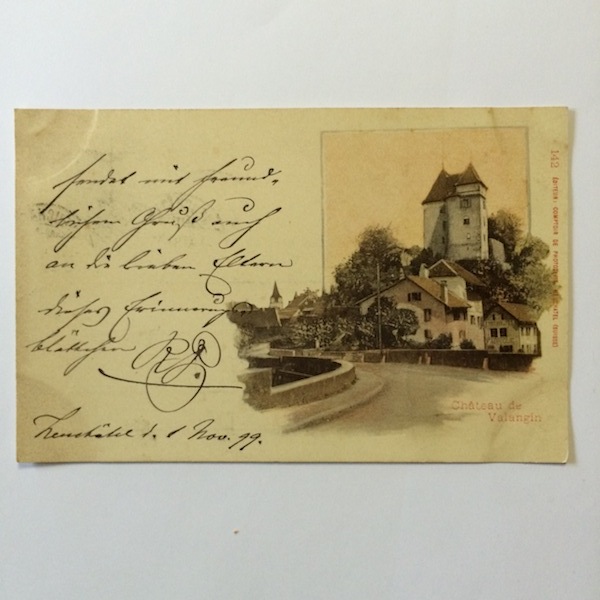 sendet mit freund-
lichem Gruß auch
an die lieben Eltern
dieses Erinnerungs
blättchen
Neuchâtel d. 1 Nov. 99.
Château de
Valangin
142 EDITEUR: COMPTOIR DE